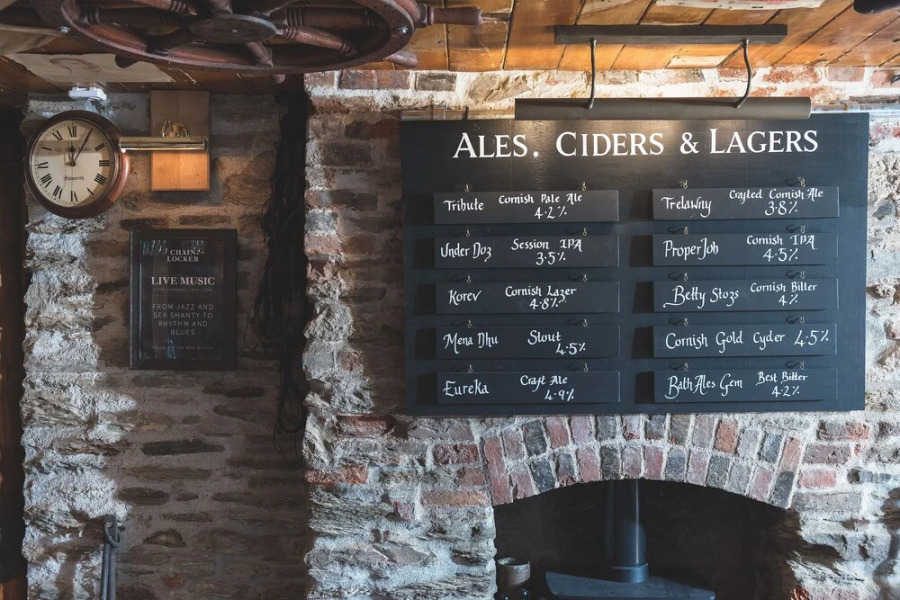 ALES, CIDERS & LAGERS
Tribute Cornish Pale Ale
4.2%
Under Doz Session IPA
3.5%
Korev Cornish Lager
4.8%
Mena Dhu Stout
4.5%
Eureka Craft Ale
4.9%
Trelawny Crafted Cornish Ale
3.8%
Proper Job Cornish IPA
4.5%
Betty Stogs Cornish Bitter
4%
Cornish Gold Cyder 4.5%
Bath Ales Gem Best Bitter
4.2%
CHAIN
LOCKER
LIVE MUSIC
FROM JAZZ AND
SEA SHANTY TO
RHYTHM AND
BLUES